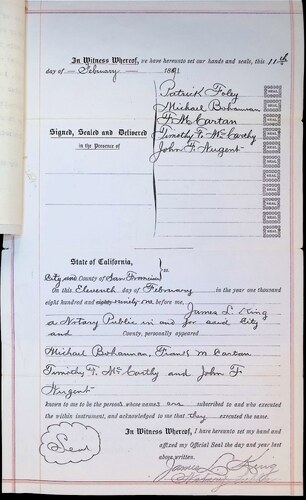 In Witness Whereof, we have hereunto set our hands and seals, this 11th
day of February 1891
Patrick Foley
Michael Bohannan
F. McCartan
Signed, Sealed and Delivered
Timothy F. McCarthy
in the Presence of
John F. Nugent
State of California,
ss.
City and County of San Francisco
On this Eleventh day of February in the year one thousand
eight hundred and ninety-one before me,
James L. King
a Notary Public in and for said City
and County, personally appeared
Michael Bohannan, Francis McCartan
Timothy F. McCarthy and John F
Nugent
known to me to be the persons whose names are subscribed to and who executed the
within instrument, and acknowledged to me that they executed the same.
In Witness Whereof, I have hereunto set my hand and
affixed my Official Seal the day and year last
above written.
Seal
James L. King
Notary Public